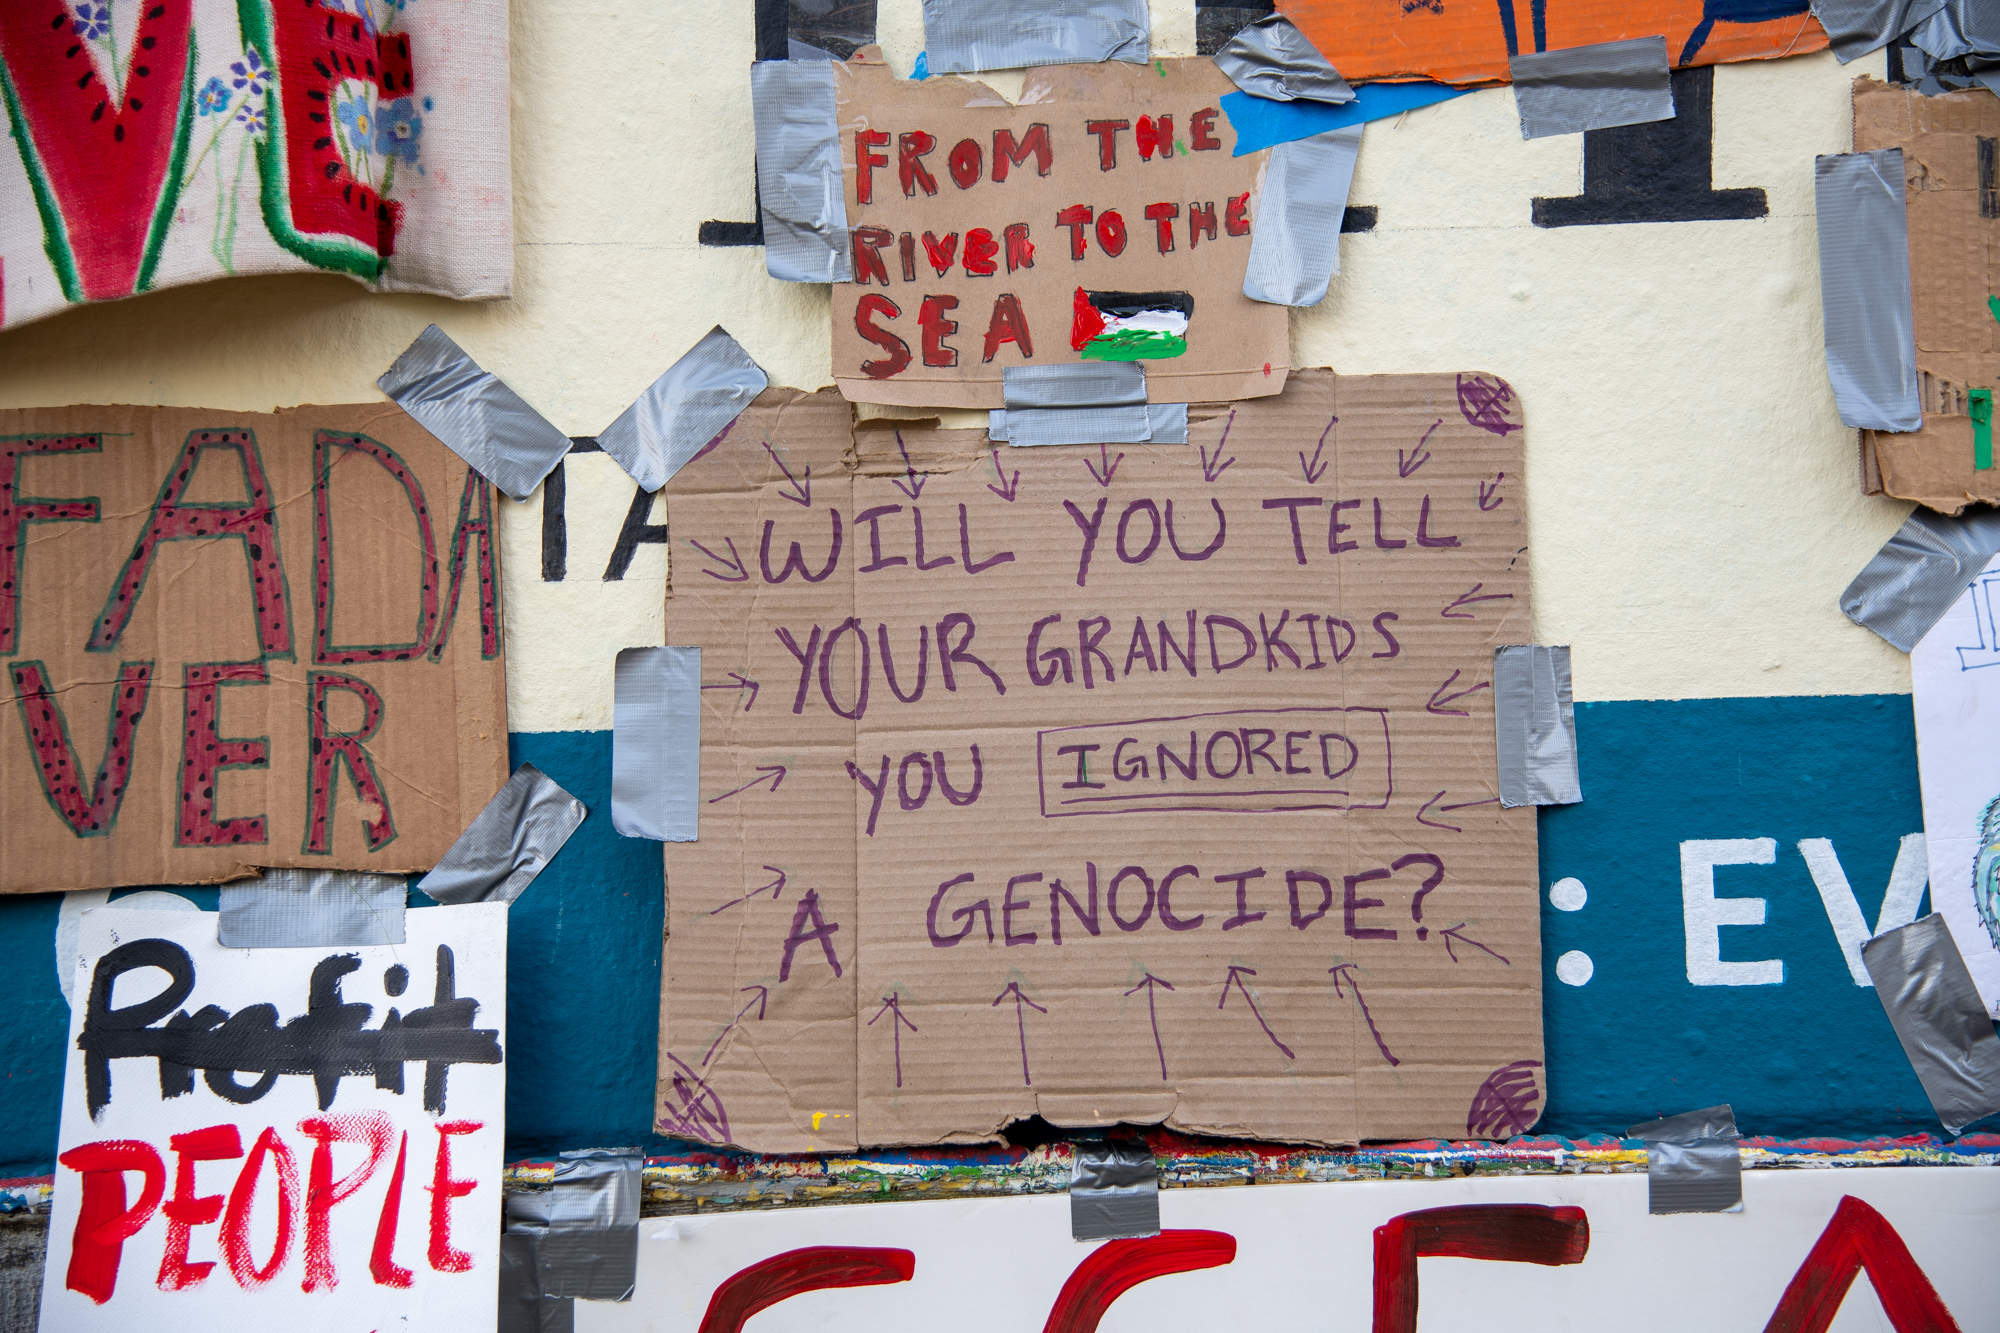 VE
FROM THE
RIVER TO THE
SEA
FADA
VER
TA
WILL YOU TELL
YOUR GRANDKIDS
YOU IGNORED
A GENOCIDE?
: EV
Profit
PEOPLE